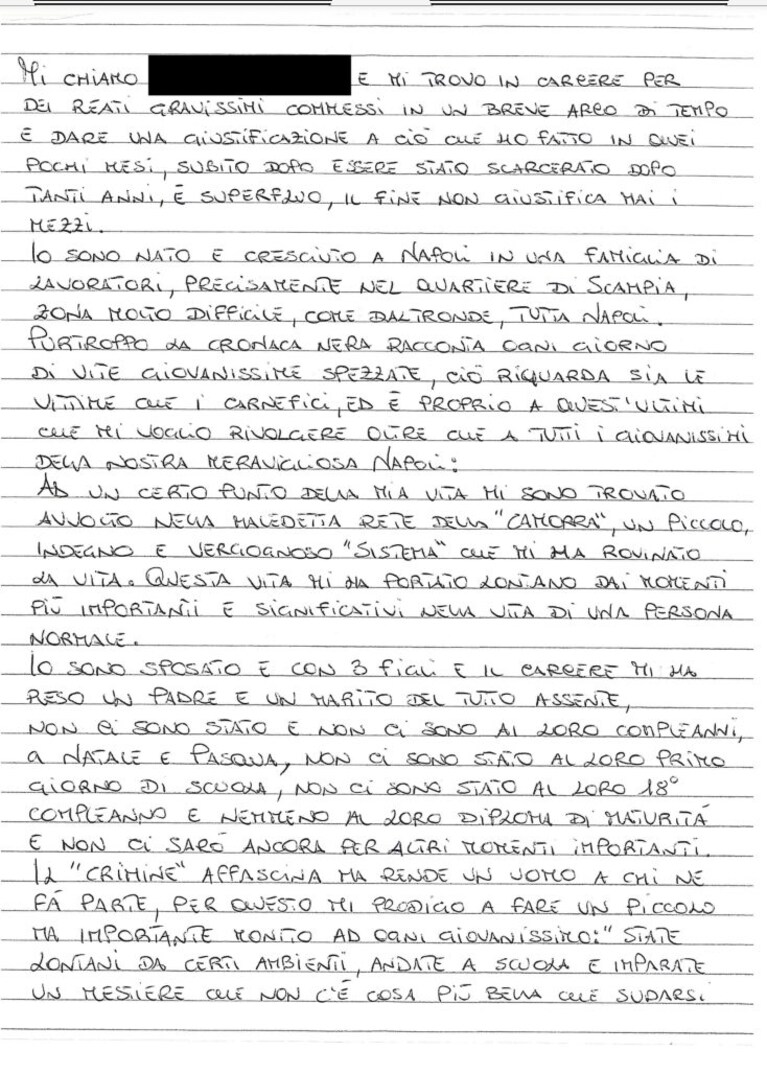 MI CHIAMO E MI TROVO IN CARCERE PER
DEI REATI GRAVISSIMI COMMESSI IN UN BREVE ARCO DI TEMPO
E DARE UNA GIUSTIFICAZIONE A CIÒ CHE HO FATTO IN QUEI
POCHI MESI, SUBITO DOPO ESSERE STATO SCARCERATO DOPO
TANTI ANNI, È SUPERFLUO, IL FINE NON GIUSTIFICA MAI I
MEZZI.
IO SONO NATO E CRESCIUTO A NAPOLI IN UNA FAMIGLIA DI
LAVORATORI, PRECISAMENTE NEL QUARTIERE DI SCAMPIA,
ZONA MOLTO DIFFICILE, COME DALTRONDE, TUTTA NAPOLI.
PURTROPPO LA CRONACA NERA RACCONTA OGNI GIORNO
DI VITE GIOVANISSIME SPEZZATE, CIÒ RIGUARDA SIA LE
VITTIME CHE I CARNEFICI, ED È PROPRIO A QUEST'ULTIMI
CHE MI VOGLIO RIVOLGERE OLTRE CHE A TUTTI I GIOVANISSIMI
DELLA NOSTRA MERAVIGLIOSA NAPOLI:
AD UN CERTO PUNTO DELLA MIA VITA MI SONO TROVATO
AVVOLTO NELLA MALEDETTA RETE DELLA "CAMORRA", UN PICCOLO,
INDEGNO E VERGOGNOSO "SISTEMA" CHE MI HA ROVINATO
LA VITA. QUESTA VITA MI HA PORTATO LONTANO DAI MOMENTI
PIÙ IMPORTANTI E SIGNIFICATIVI NELLA VITA DI UNA PERSONA
NORMALE.
IO SONO SPOSATO E CON 3 FIGLI E IL CARCERE MI HA
RESO UN PADRE E UN MARITO DEL TUTTO ASSENTE,
NON CI SONO STATO E NON CI SONO AI LORO COMPLEANNI,
A NATALE E PASQUA, NON CI SONO STATO AL LORO PRIMO
GIORNO DI SCUOLA, NON CI SONO STATO AL LORO 18°
COMPLEANNO E NEMMENO AL LORO DIPLOMA DI MATURITÀ
E NON CI SARÒ ANCORA PER ALTRI MOMENTI IMPORTANTI.
IL "CRIMINE" AFFASCINA MA RENDE UN UOMO A CHI NE
FÀ PARTE, PER QUESTO MI PRODIGO A FARE UN PICCOLO
MA IMPORTANTE MONITO AD OGNI GIOVANISSIMO:" STATE
LONTANI DA CERTI AMBIENTI, ANDATE A SCUOLA E IMPARATE
UN MESTIERE CHE NON C'È COSA PIÙ BELLA CHE SUDARSI